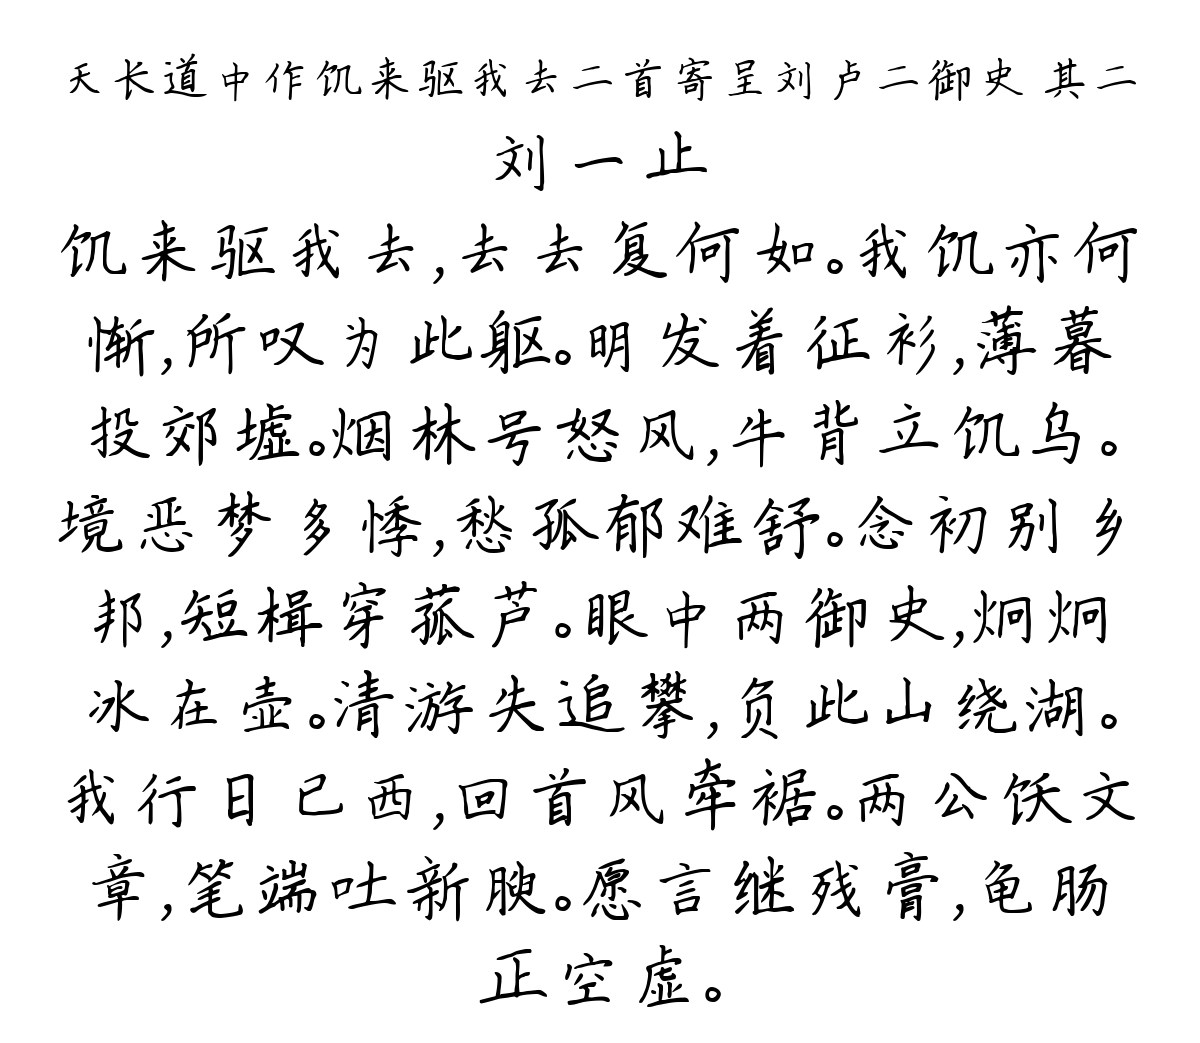 天长道中作饥来驱我去二首寄呈刘卢二御史 其二
刘一止
饥来驱我去,去去复何如。我饥亦何
惭,所叹为此躯。明发着征衫,薄暮
投郊墟。烟林号怒风,牛背立饥乌。
境恶梦多悸,愁孤郁难舒。念初别乡
邦,短楫穿菰芦。眼中两御史,炯炯
冰在壶。清游失追攀,负此山绕湖。
我行日已西,回首风牵裾。两公饫文
章,笔端吐新腴。愿言继残膏,龟肠
正空虚。